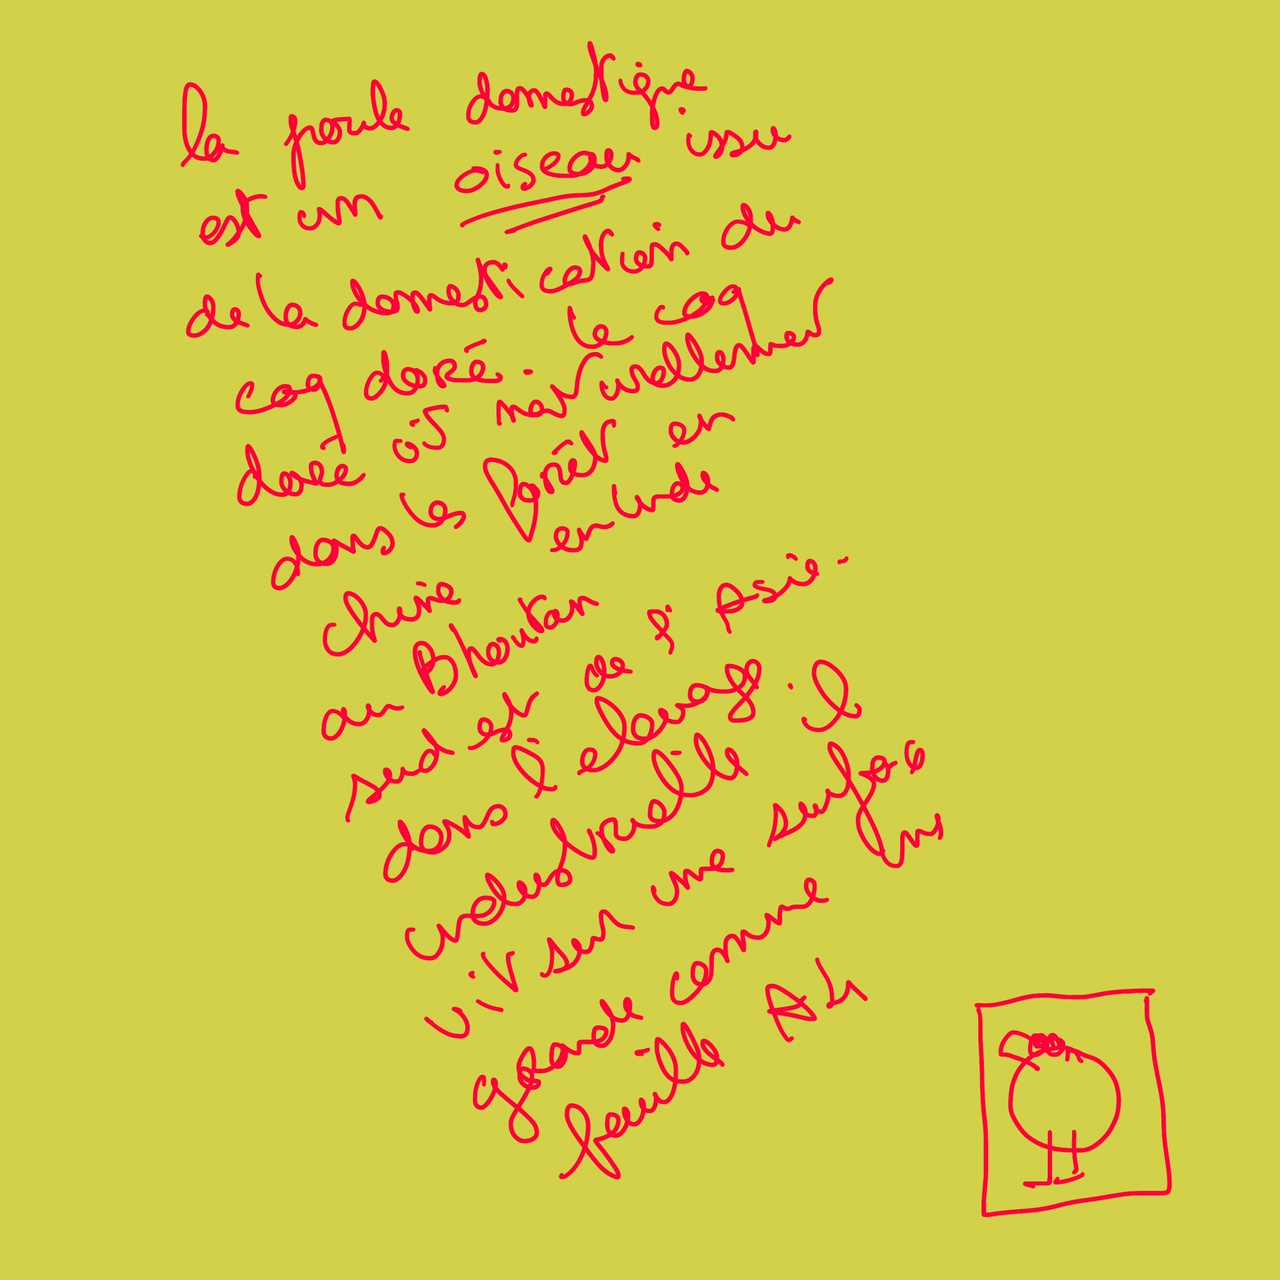 la poule domestique
est un oiseau issu
de la domestication du
coq doré. le coq
doré naturellement
dans les forêt en
chine en Inde
au Bhoutan
sud est de l'Asie.
dans l'elevage
industrielle il
vit sur une surface
grande comme
feuille A4